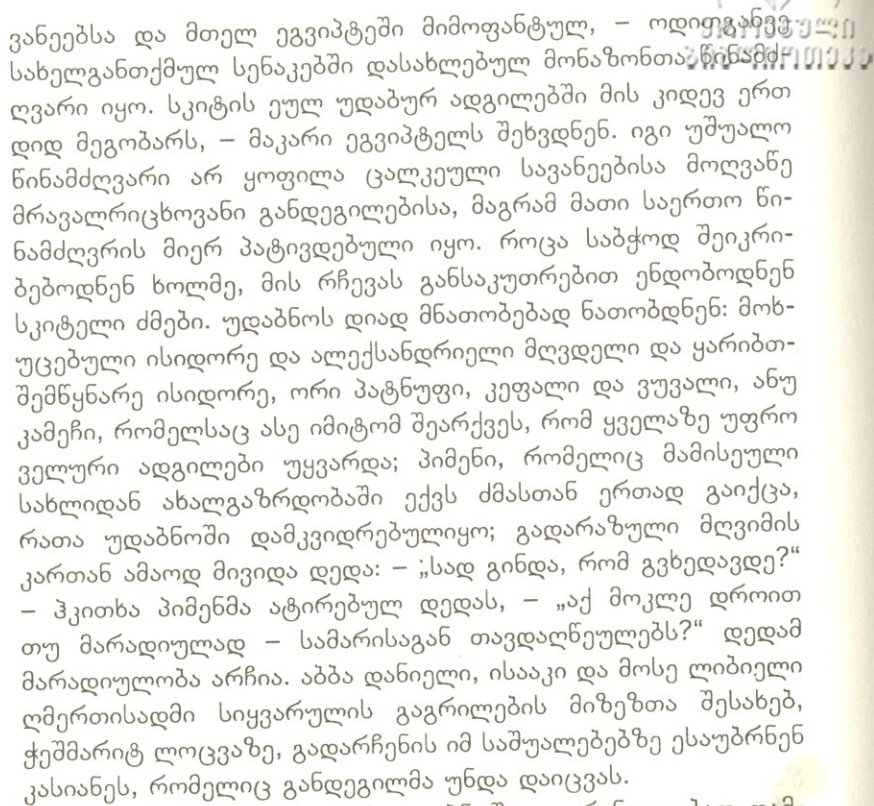 ვანეებსა და მთელ ეგვიპტეში მიმოფანტულ, – ოდითგანვე
სახელგანთქმულ სენაკებში დასახლებულ მონაზონთა წინამძ-
ღვარი იყო. სკიტის ეულ უდაბურ ადგილებში მის კიდევ ერთ
დიდ მეგობარს, – მაკარი ეგვიპტელს შეხვდნენ. იგი უშუალო
წინამძღვარი არ ყოფილა ცალკეული სავანეებისა მოღვაწე
მრავალრიცხოვანი განდეგილებისა, მაგრამ მათი საერთო წი-
ნამძღვრის მიერ პატივდებული იყო. როცა საბჭოდ შეიკრი-
ბებოდნენ ხოლმე, მის რჩევას განსაკუთრებით ენდობოდნენ
სკიტელი ძმები. უდაბნოს დიად მნათობებად ნათობდნენ: მოხ-
უცებული ისიდორე და ალექსანდრიელი მღვდელი და ყარიბთ-
შემწყნარე ისიდორე, ორი პატნუფი, კეფალი და ვუვალი, ანუ
კამეჩი, რომელსაც ასე იმიტომ შეარქვეს, რომ ყველაზე უფრო
ველური ადგილები უყვარდა; პიმენი, რომელიც მამისეული
სახლიდან ახალგაზრდობაში ექვს ძმასთან ერთად გაიქცა,
რათა უდაბნოში დამკვიდრებულიყო; გადარაზული მღვიმის
კართან ამაოდ მივიდა დედა: – „სად გინდა, რომ გვხედავდე?“
– ჰკითხა პიმენმა ატირებულ დედას, – „აქ მოკლე დროით
თუ მარადიულად – სამარისაგან თავდაღწეულებს?“ დედამ
მარადიულობა არჩია. აბბა დანიელი, ისააკი და მოსე ლიბიელი
ღმერთისადმი სიყვარულის გაგრილების მიზეზთა შესახებ,
ჭეშმარიტ ლოცვაზე, გადარჩენის იმ საშუალებებზე ესაუბრნენ
კასიანეს, რომელიც განდეგილმა უნდა დაიცვას.